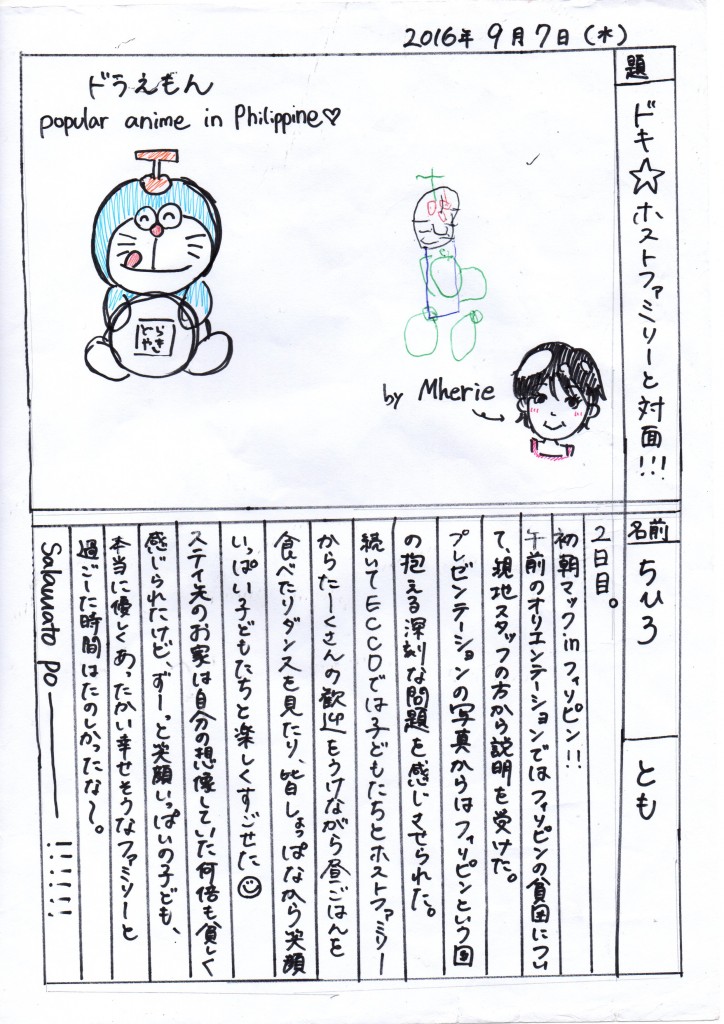 2016年 9月7日(水)
題
ドキ☆ホストファミリーと対面!!!
ドラえもん
popular anime in Philippine♡
どら
やき
by Mherie
名前
ちひろ
とも
2日目。
初朝マック in フィリピン!!
午前のオリエンテーションではフィリピンの貧困につい
て、現地スタッフの方から説明を受けた。
プレゼンテーションの写真からはフィリピンという国
の抱える深刻な問題を感じさせられた。
続いてECCDでは子どもたちとホストファミリー
からたーくさんの歓迎をうけながら昼ごはんを
食べたりダンスを見たり、皆しょっぱなから笑顔
いっぱい子どもたちと楽しくすごせた☺
ステイ先のお家は自分の想像していた何倍も貧しく
感じられたけど、ずーっと笑顔いっぱいの子ども、
本当に優しくあったかい幸せそうなファミリーと
過ごした時間はたのしかったな〜。
Salamato po―――!!!!!!!